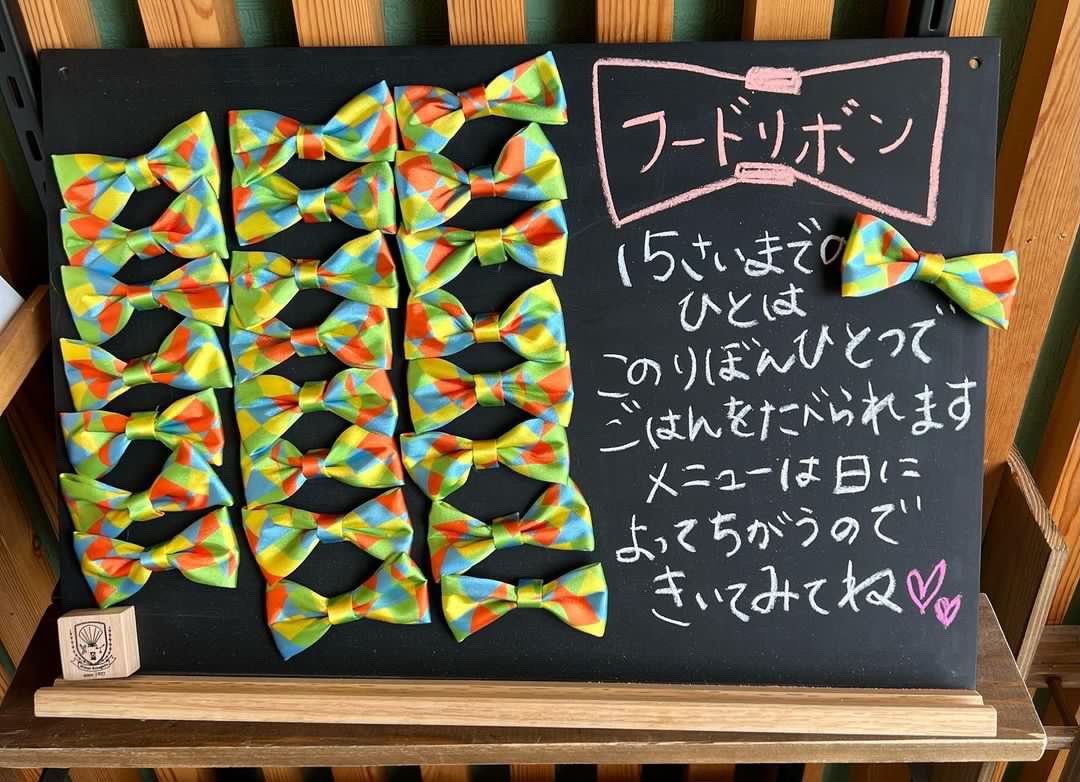 フードリボン
15さいまでの
ひとは
このりぼんひとつで
ごはんをたべられます
メニューは日に
よってちがうので
きいてみてね